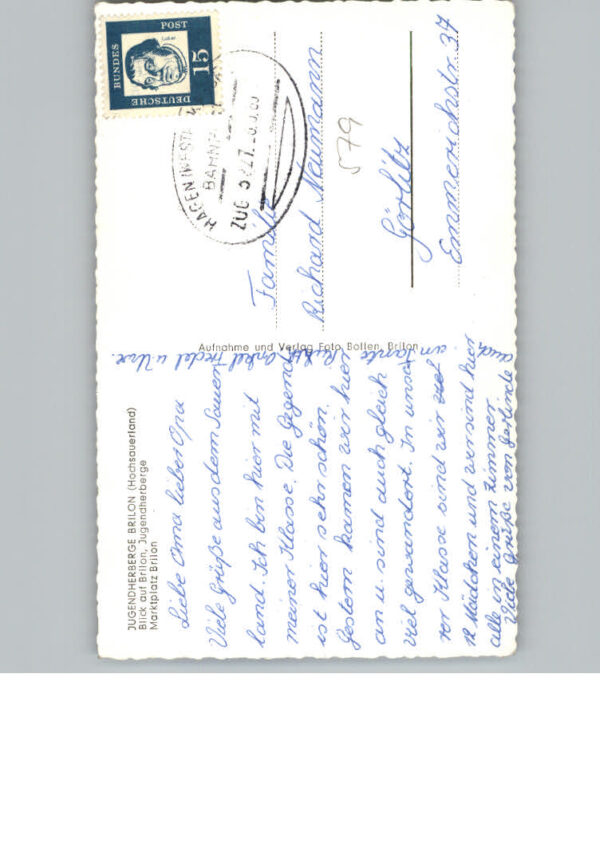 JUGENDHERBERGE BRILON (Hochsauerland)
Blick auf Brilon, Jugendherberge
Marktplatz Brilon
Liebe Oma lieber Opa
Viele Grüße aus dem Sauer
land. Ich bin hier mit
meiner Klasse. Die Gegend
ist hier sehr schön.
Gestern kamen wir hier
an u. sind auch gleich
viel gewandert. In unse
rer Klasse sind wir
12 Mädchen und wir sind hier
alle in einem Zimmer
Viele Grüße von Gerlinde
auch an Tante Onkel u
Aufnahme und Verlag Foto Botten, Brilon
DEUTSCHE
BUNDES
POST
15
Luther
HAGEN (WESTF
BAHNP
ZUG
Familie
Richard Neumann
579
Görlitz
Emmerichstr. 37